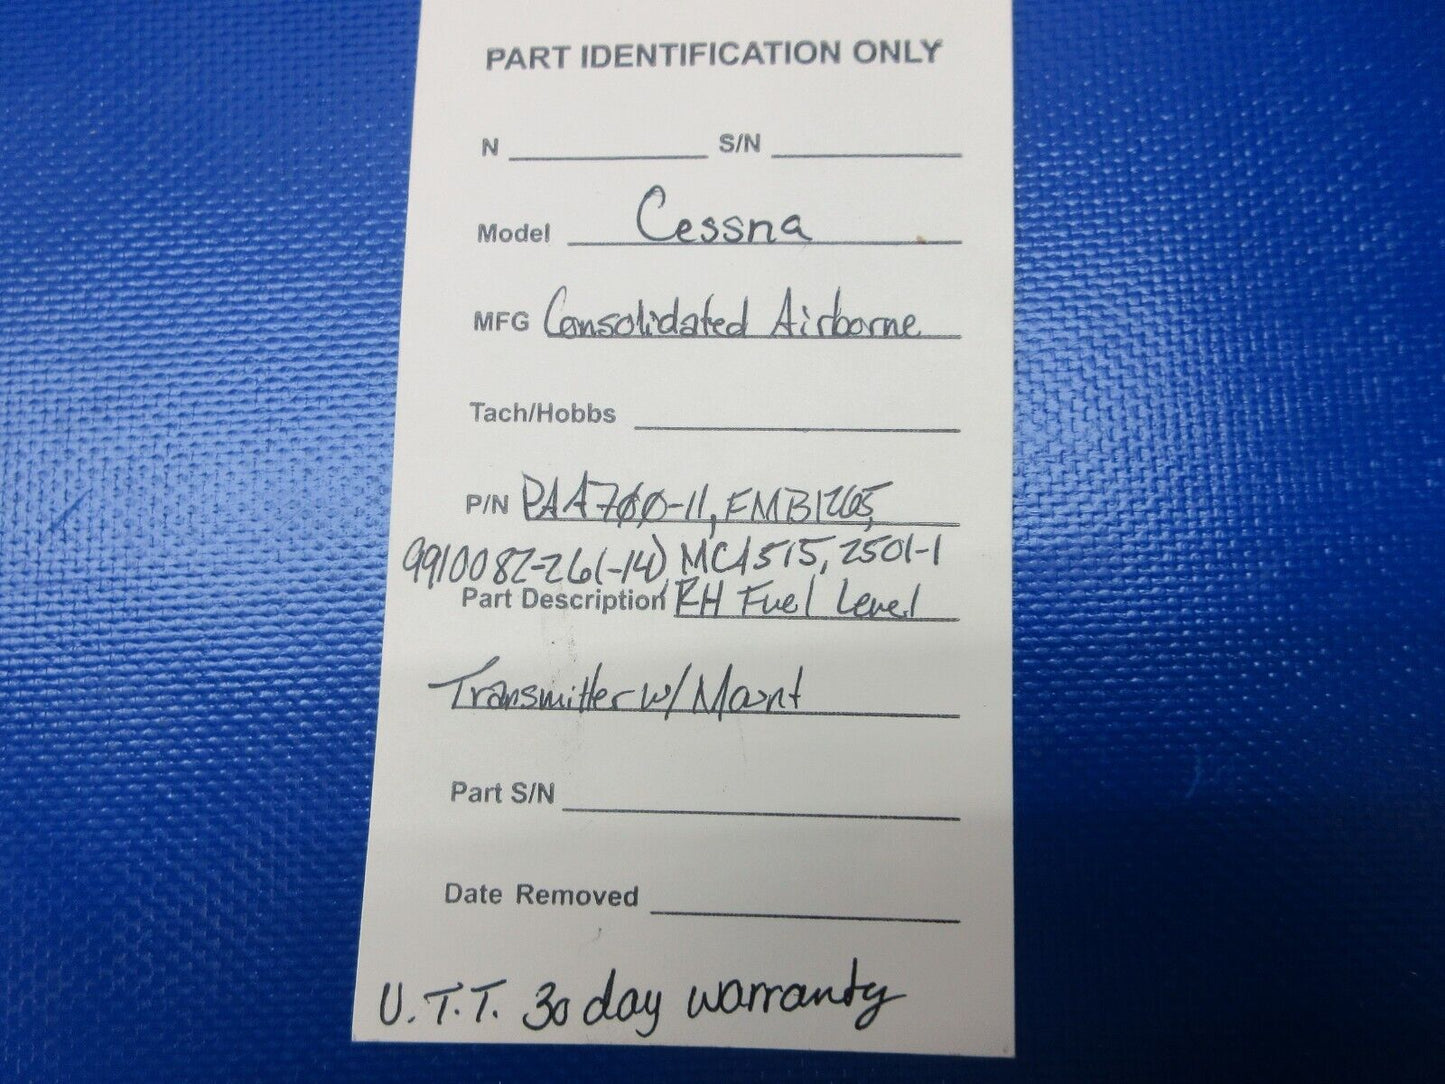 PART IDENTIFICATION ONLY
N S/N
Model Cessna
MFG Consolidated Airborne
Tach/Hobbs
P/N PAA700-11, EMB1265,
9910082-26(-14) MCA515, 2501-1
Part Description RH Fuel Level
Transmitter w/ Mount
Part S/N
Date Removed
U.T.T. 30 day warranty